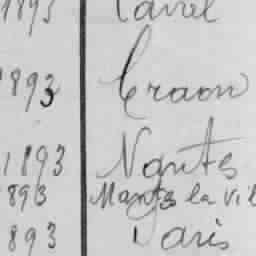 1893 Laval
1893 Craon
1893 Nantes
893 Mantes la vil
893 Paris